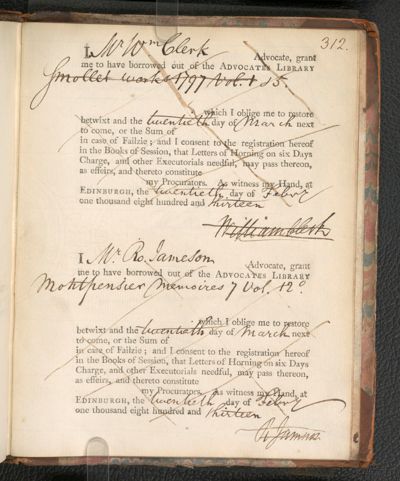 312.
I, Mr Wm Clerk Advocate, grant
me to have borrowed out of the ADVOCATES LIBRARY
Smollet works 1797 Vol. 1 & 5.
which I oblige me to restore
betwixt and the twentieth day of March next
to come, or the Sum of
in case of Failzie; and I consent to the registration hereof
in the Books of Session, that Letters of Horning on six Days
Charge, and other Executorials needful, may pass thereon,
as effeirs, and thereto constitute
my Procurators. As witness my Hand, at
EDINBURGH, the twentieth day of Febry
one thousand eight hundred and thirteen
William Clerk
I, Mr. Ro. Jameson Advocate, grant
me to have borrowed out of the ADVOCATES LIBRARY
Montpensier Memoires 7 Vol. 12o.
which I oblige me to restore
betwixt and the twentieth day of March next
to come, or the Sum of
in case of Failzie; and I consent to the registration hereof
in the Books of Session, that Letters of Horning on six Days
Charge, and other Executorials needful, may pass thereon,
as effeirs, and thereto constitute
my Procurators. As witness my Hand, at
EDINBURGH, the twentieth day of Febry
one thousand eight hundred and thirteen
R Jameson